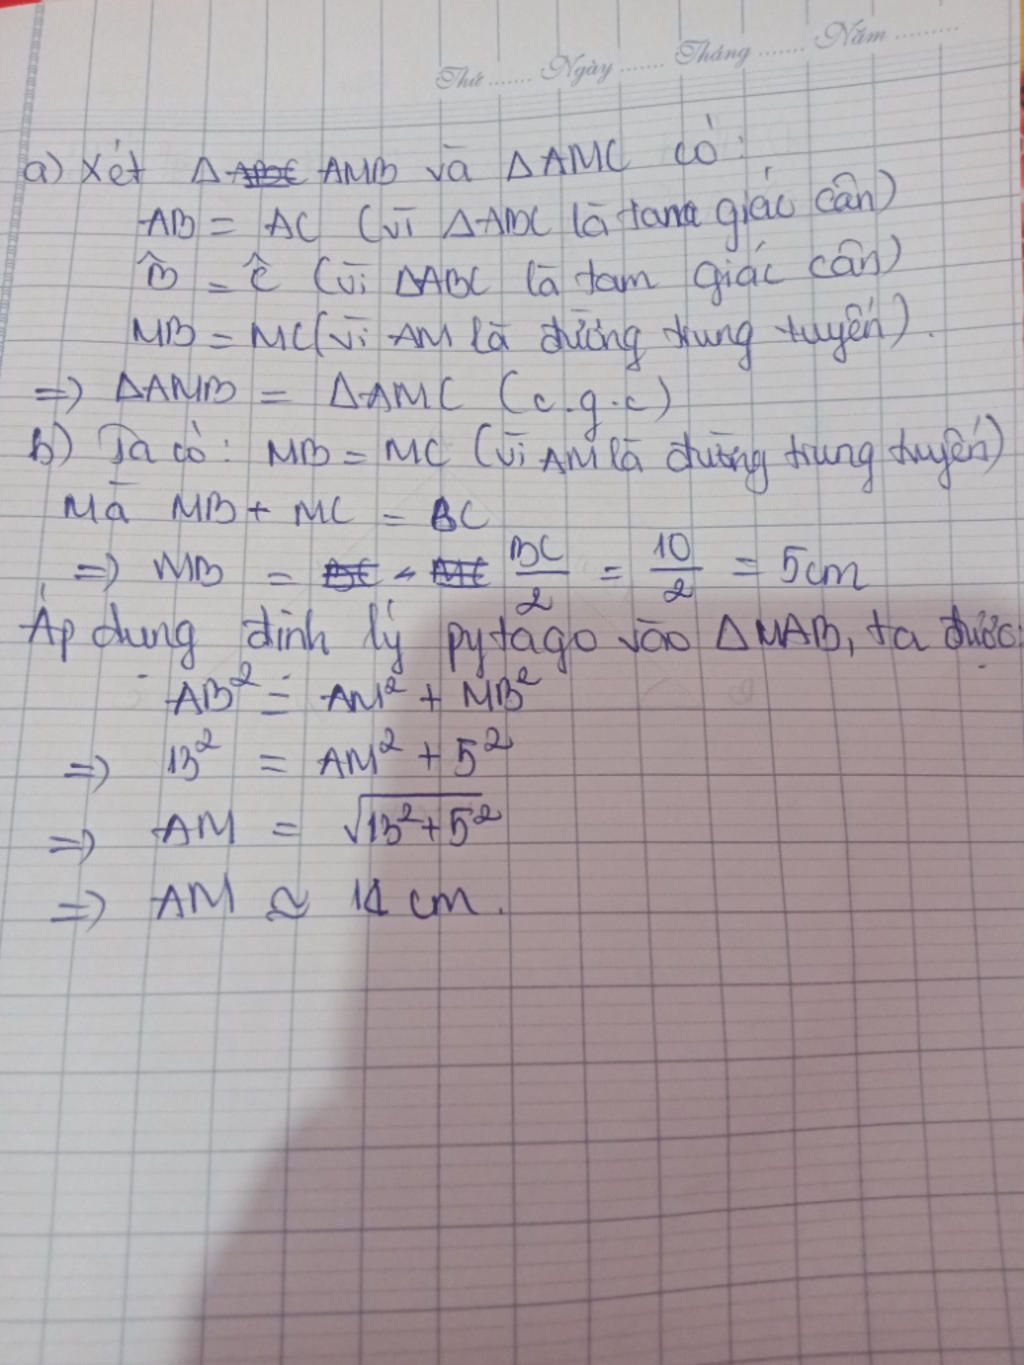 Thứ ....... Ngày ....... Tháng ....... Năm ..........
a) Xét Δ AMB và Δ AMC có:
AB = AC (vì ΔABC là tam giác cân)
B̂ = Ĉ (vì ΔABC là tam giác cân)
MB = MC (vì AM là đường trung tuyến).
=> ΔAMB = ΔAMC (c.g.c)
b) Ta có: MB = MC (vì AM là đường trung tuyến)
Mà MB + MC = BC
=> MB = BC/2 = 10/2 = 5cm
Áp dụng định lý pytago vào ΔMAB, ta được:
AB² = AM² + MB²
=> 13² = AM² + 5²
=> AM = √13²+5²
=> AM ≈ 14 cm.